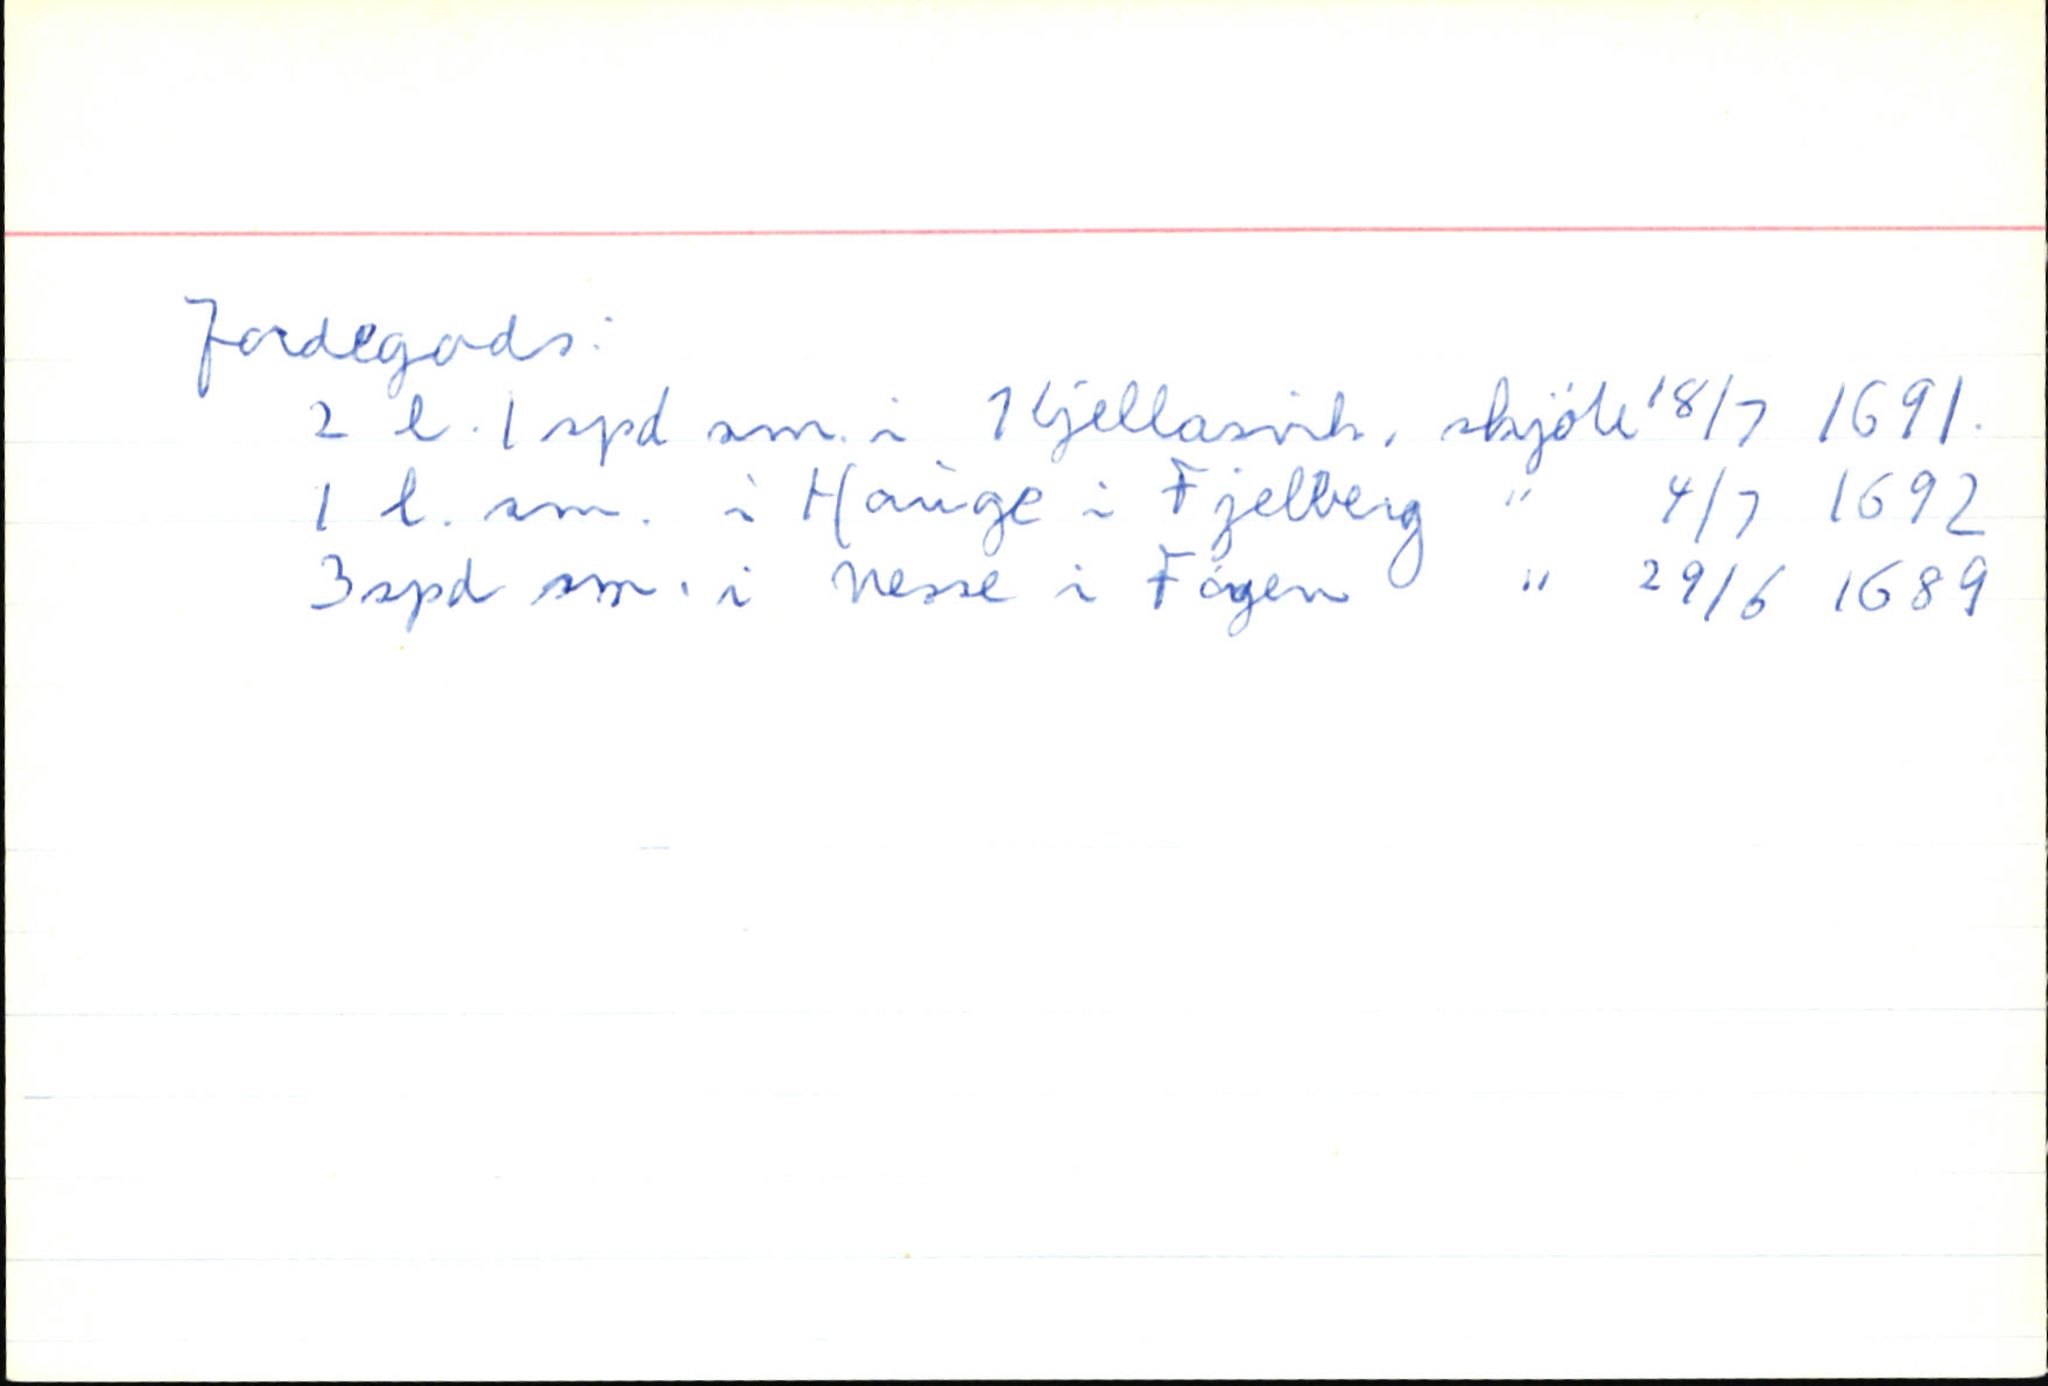 Jordegods:
2 l. 1 spd sm. i Kjellasvik, skjöte 18/7 1691.
1 l. sm. i Hauge i Fjelberg " 4/7 1692
3 spd sm. i Nesse i Föyen " 29/6 1689